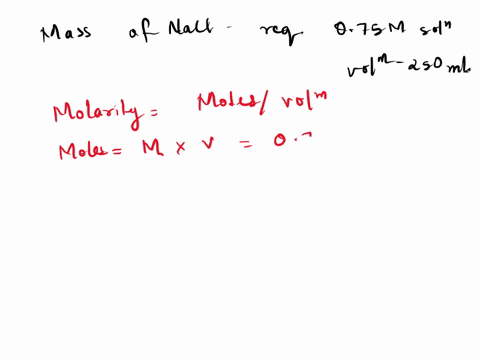 Mass of NaCl - req 0.75M solⁿ
volᵐ - 250 ml
Molarity = Moles / volᵐ
Moles = M × V = 0.